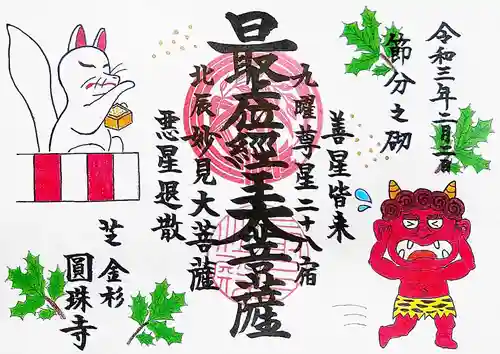 令和三年二月二日
節分之砌
善星皆来
九曜尊星二十八宿
最位経王大菩薩
北辰妙見大菩薩
悪星退散
芝金杉
圓珠寺